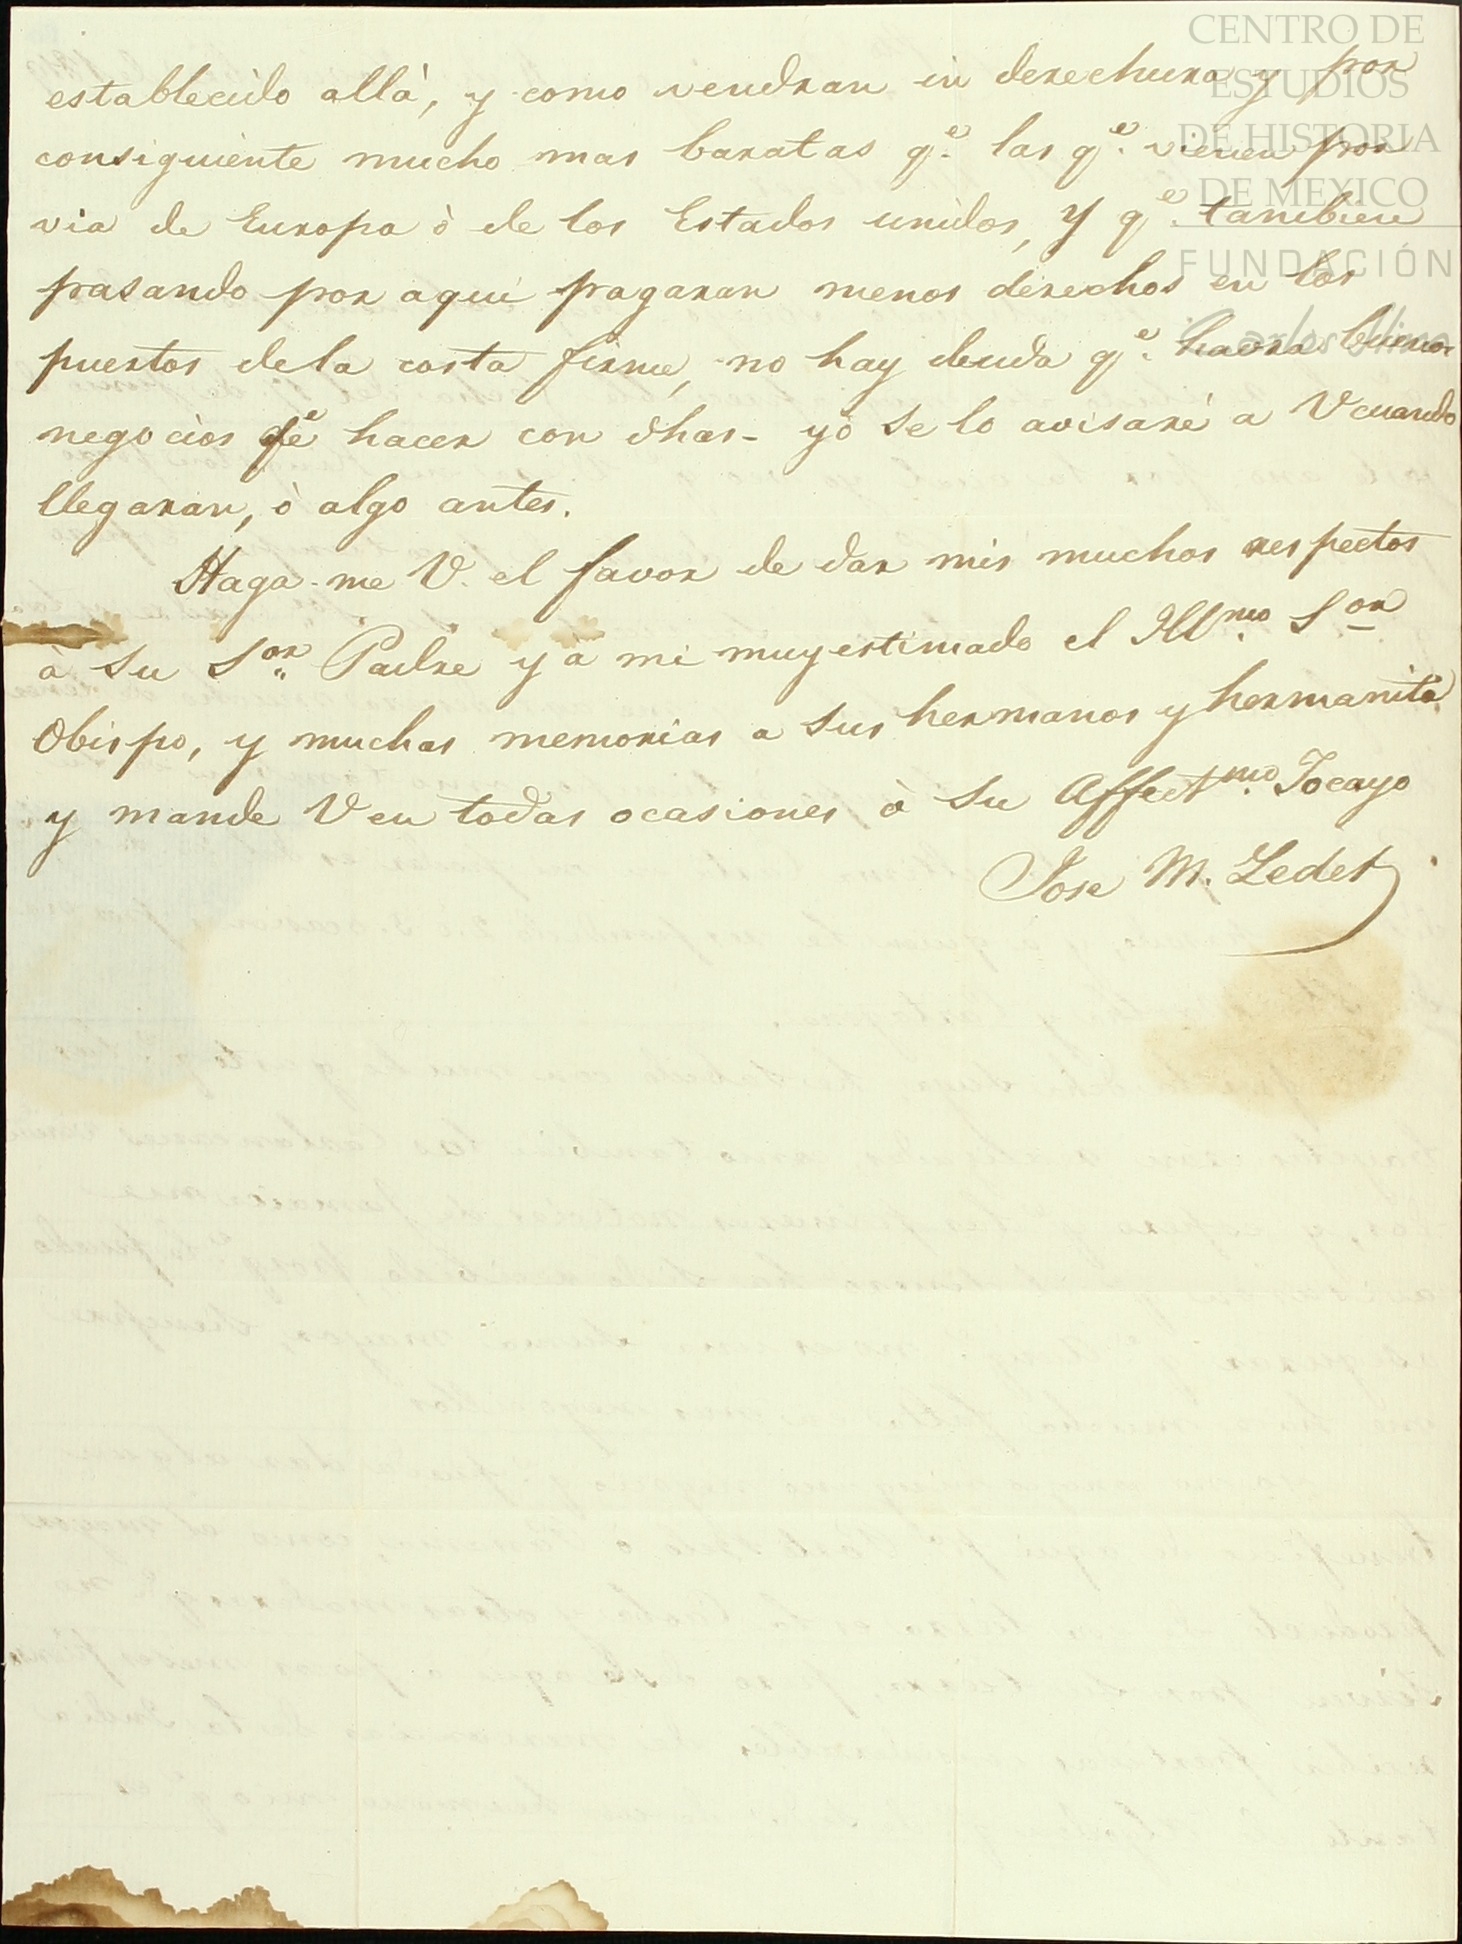 CENTRO DE
ESTUDIOS
DE HISTORIA
DE MEXICO
FUNDACIÓN
Carlos Slim
establecido allà, y como vendran in derechura y por
consiguiente mucho mas baratas qe. las qe. vienen por
via de Europa ò de los Estados unidos, y qe. tambien
pasando por aqui pagaran menos derechos en los
puertos dela costa firme, no hay deuda qe. havra buenos
negocios qe hacer con dhas- yo se lo avisaré a V cuando
llegaran, ò algo antes.
Haga-me V. el favor de dar mis muchos respectos
à su Sor. Padre y à mi muy estimado el Illmo. Sor
Obispo, y muchas memorias a sus hermanos y hermanita
y mande V en todas ocasiones à su Affectmo. Tocayo
Jose M. Ledet